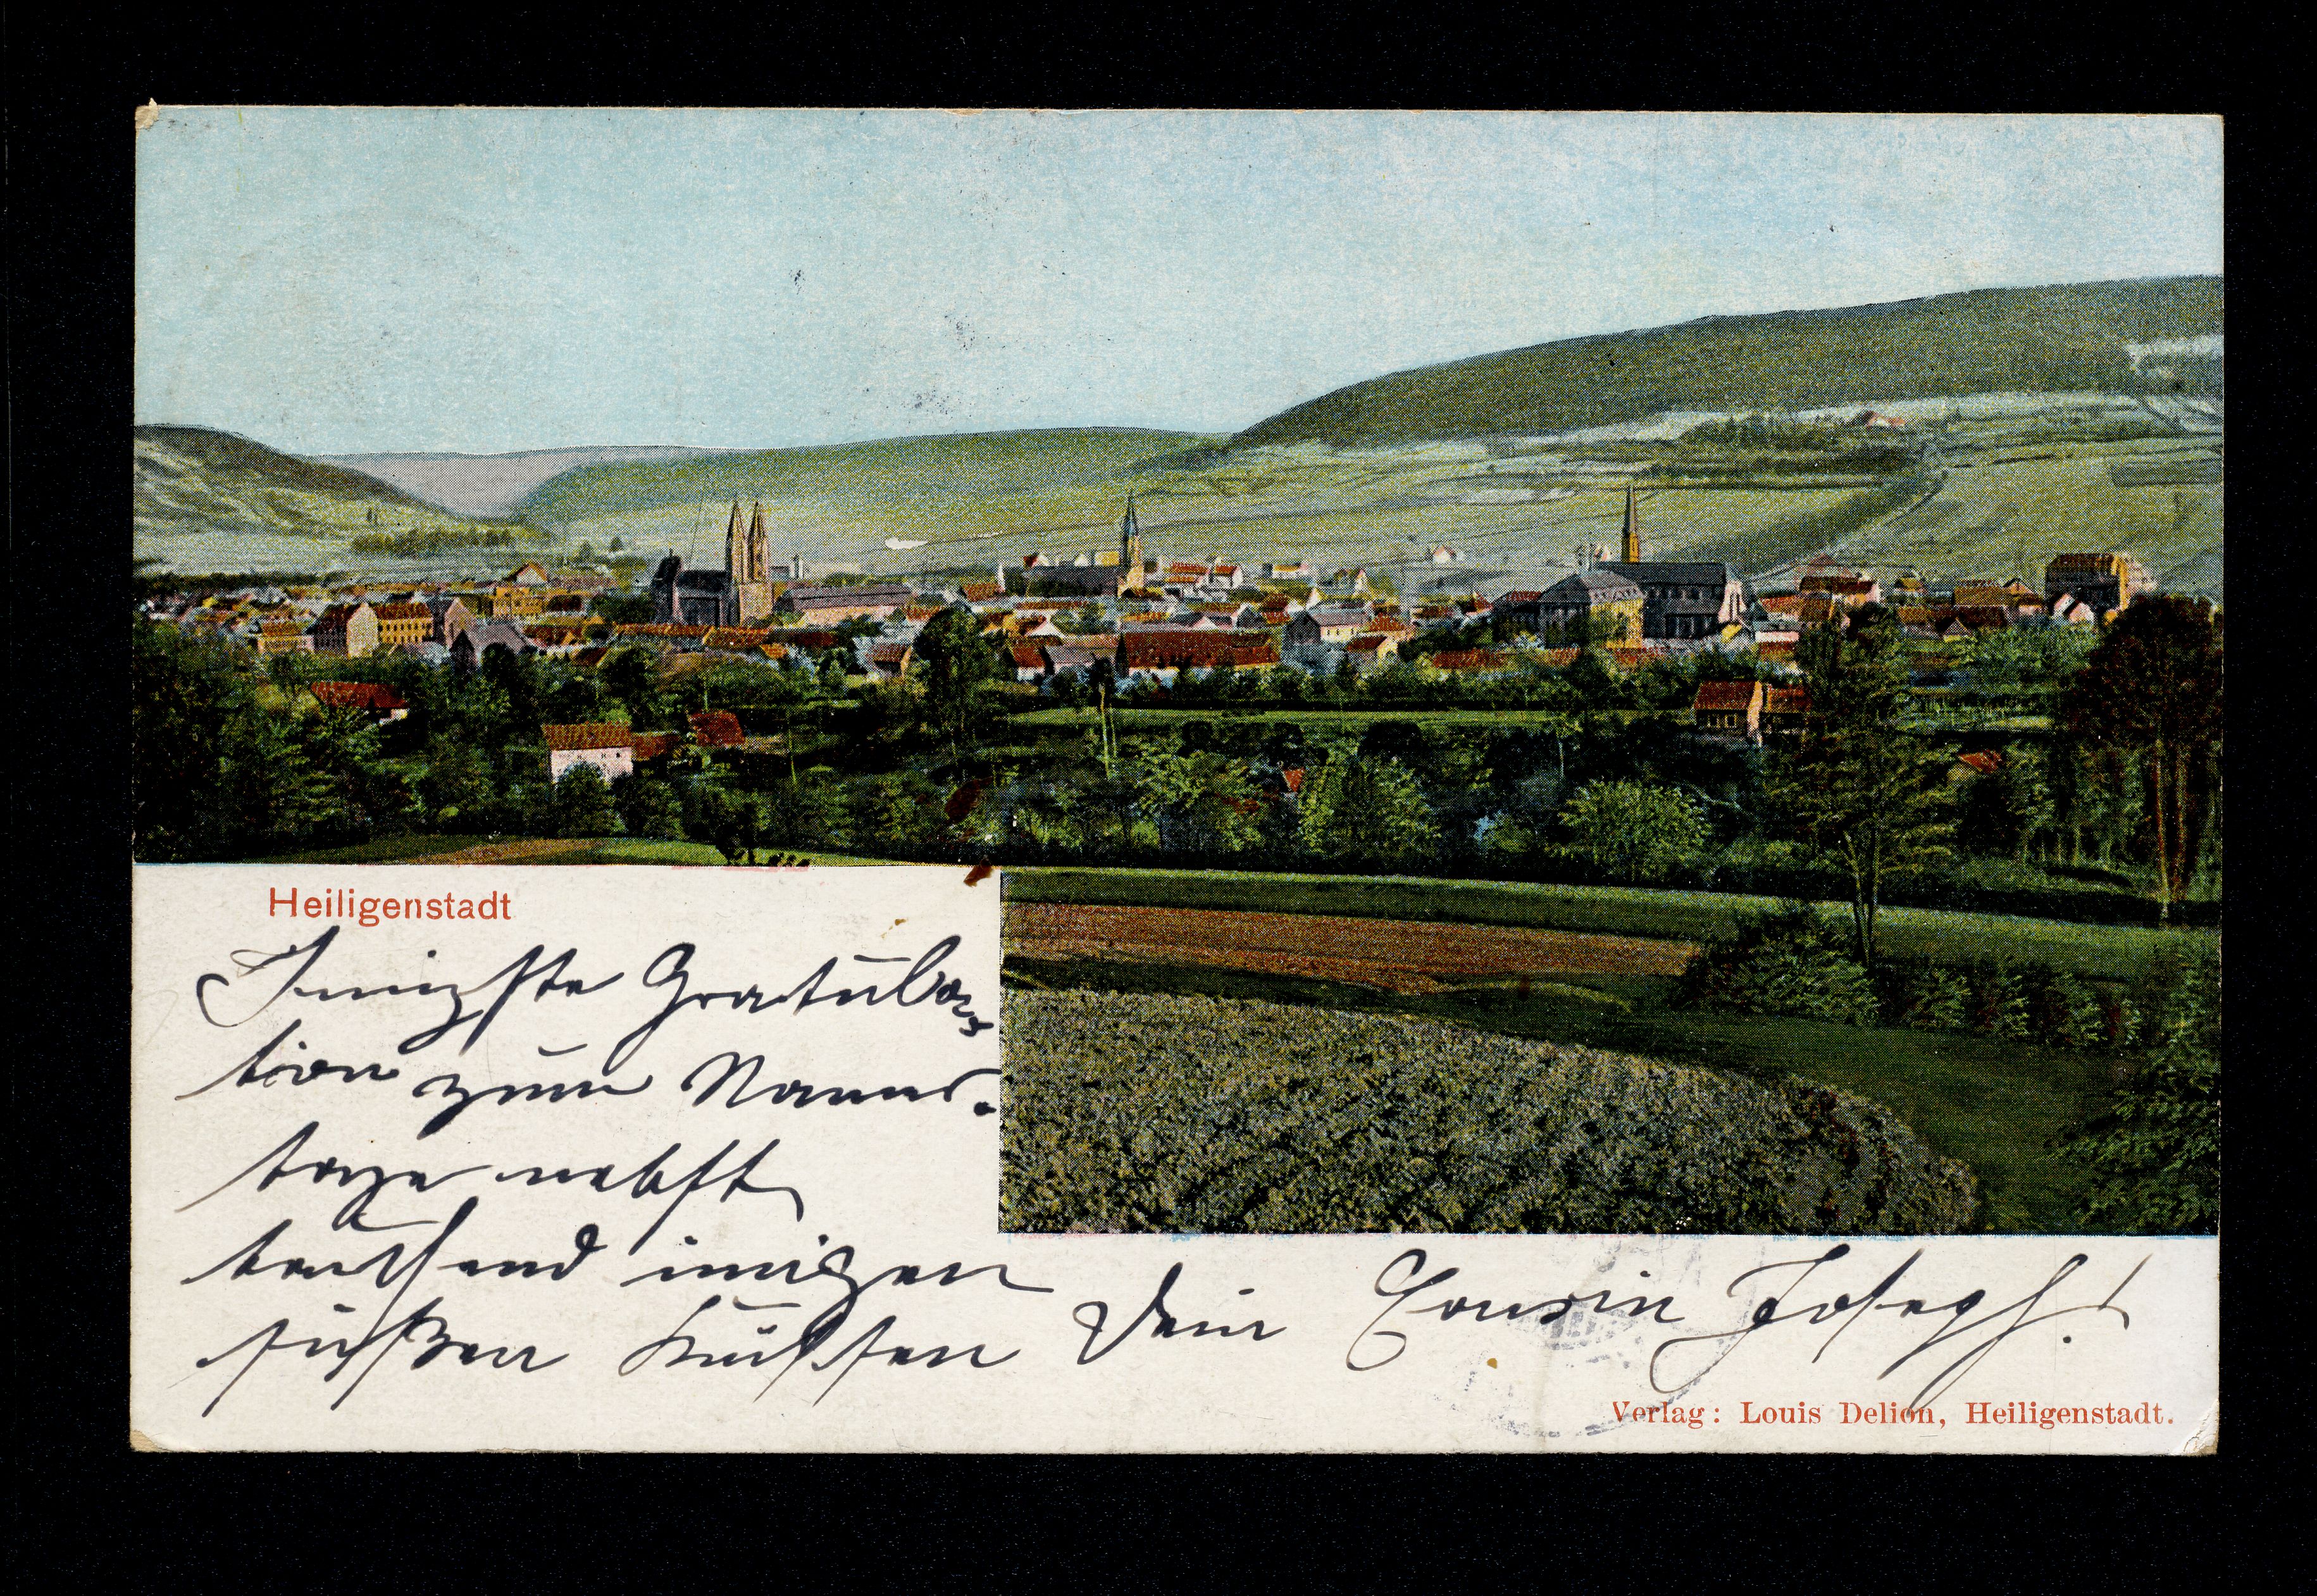 Heiligenstadt
Innigste Gratula-
tion zum Namens-
tage nebst
tausend innigen
süßen Küssen Dein Cousin Joseph!
Verlag: Louis Delion, Heiligenstadt.